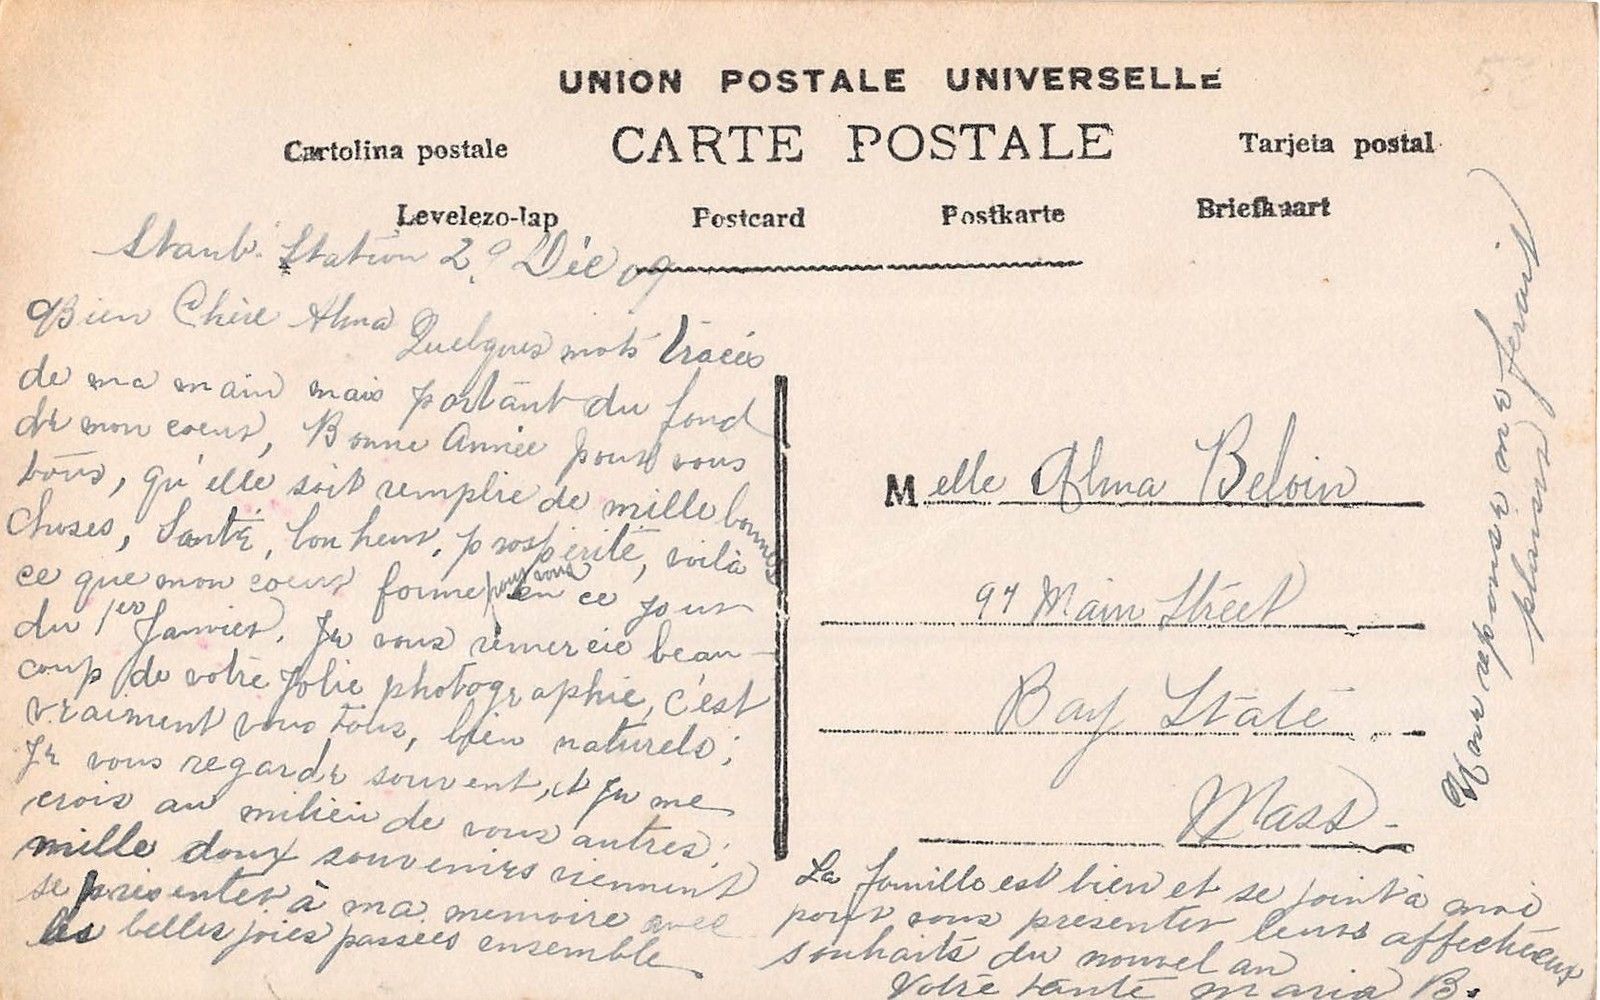 UNION POSTALE UNIVERSELLE
CARTE POSTALE
Cartolina postale
Tarjeta postal
Levelezo-lap
Postcard
Postkarte
Briefkaart
Stanb. Station 29 Déc 09
Bien Chère Alma
Quelques mots tracés
de ma main mais partant du fond
de mon coeur, Bonne Année pour vous
tous, qu'elle soit remplie de mille bonnes
choses, Santé, bonheur, prospérité, voilà
ce que mon coeur forme pour vous en ce jour
du 1er Janvier. Je vous remercie beau-
coup de votre jolie photographie, c'est
vraiment vous tous, bien naturels;
Je vous regarde souvent, et je me
crois au milieu de vous autres;
mille doux souvenirs viennent
se présenter à ma memoire avec
les belles joies passées ensemble
La famille est bien et se joint à moi
pour vous presenter leurs affectueux
souhaits du nouvel an
Votre tante Maria B.
Melle Alma Beloin
97 Main Street
Bay State
Mass-
Une reponse me ferait
plaisir